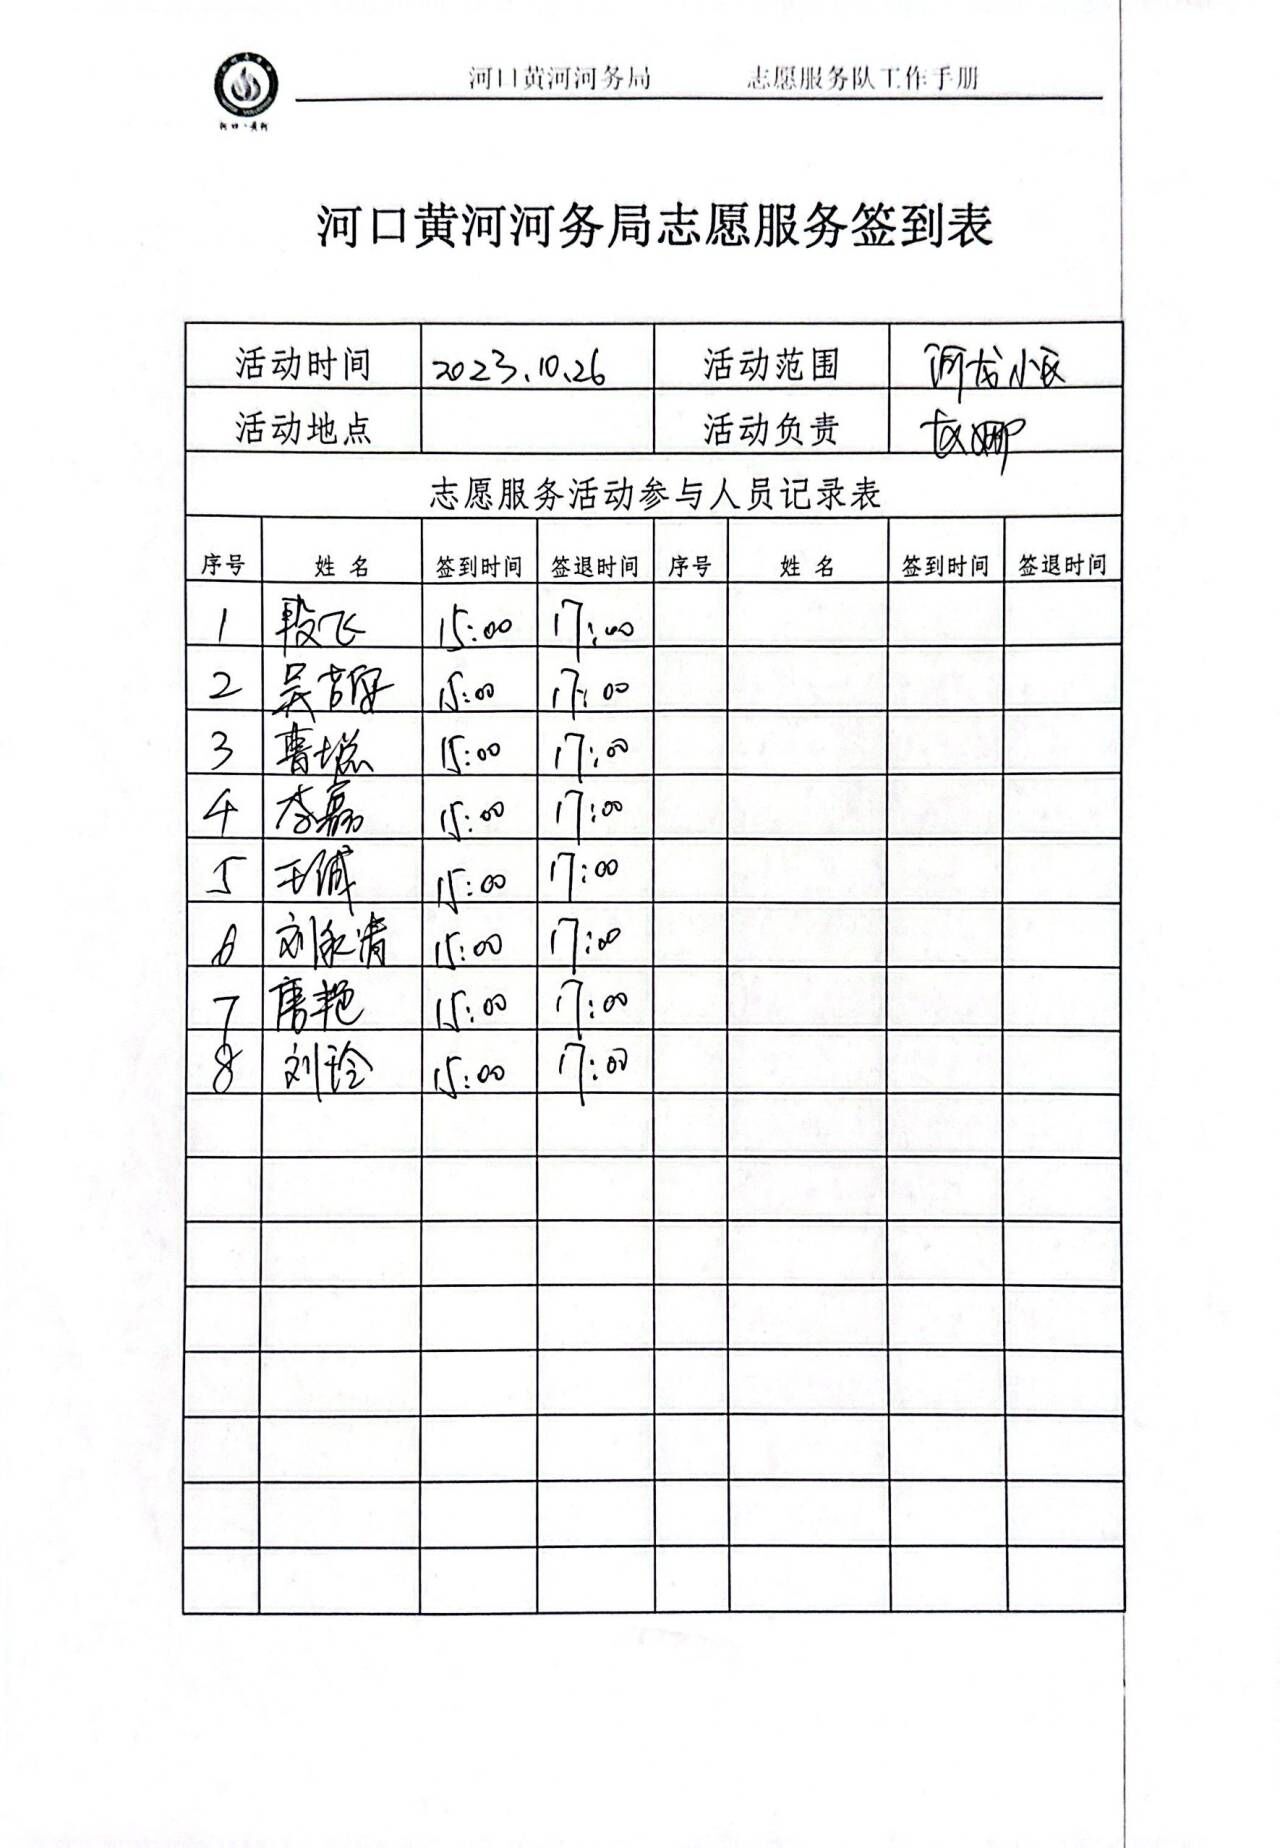 河口·黄河
河口黄河河务局 志愿服务队工作手册
河口黄河河务局志愿服务签到表
活动时间 2023.10.26 活动范围 河龙小区
活动地点 活动负责
志愿服务活动参与人员记录表
序号 姓名 签到时间 签退时间 序号 姓名 签到时间 签退时间
1 段飞 15:00 17:00
2 吴 15:00 17:00
3 曹 15:00 17:00
4 李磊 15:00 17:00
5 王诚 15:00 17:00
6 刘永清 15:00 17:00
7 唐艳 15:00 17:00
8 刘玲 15:00 17:00